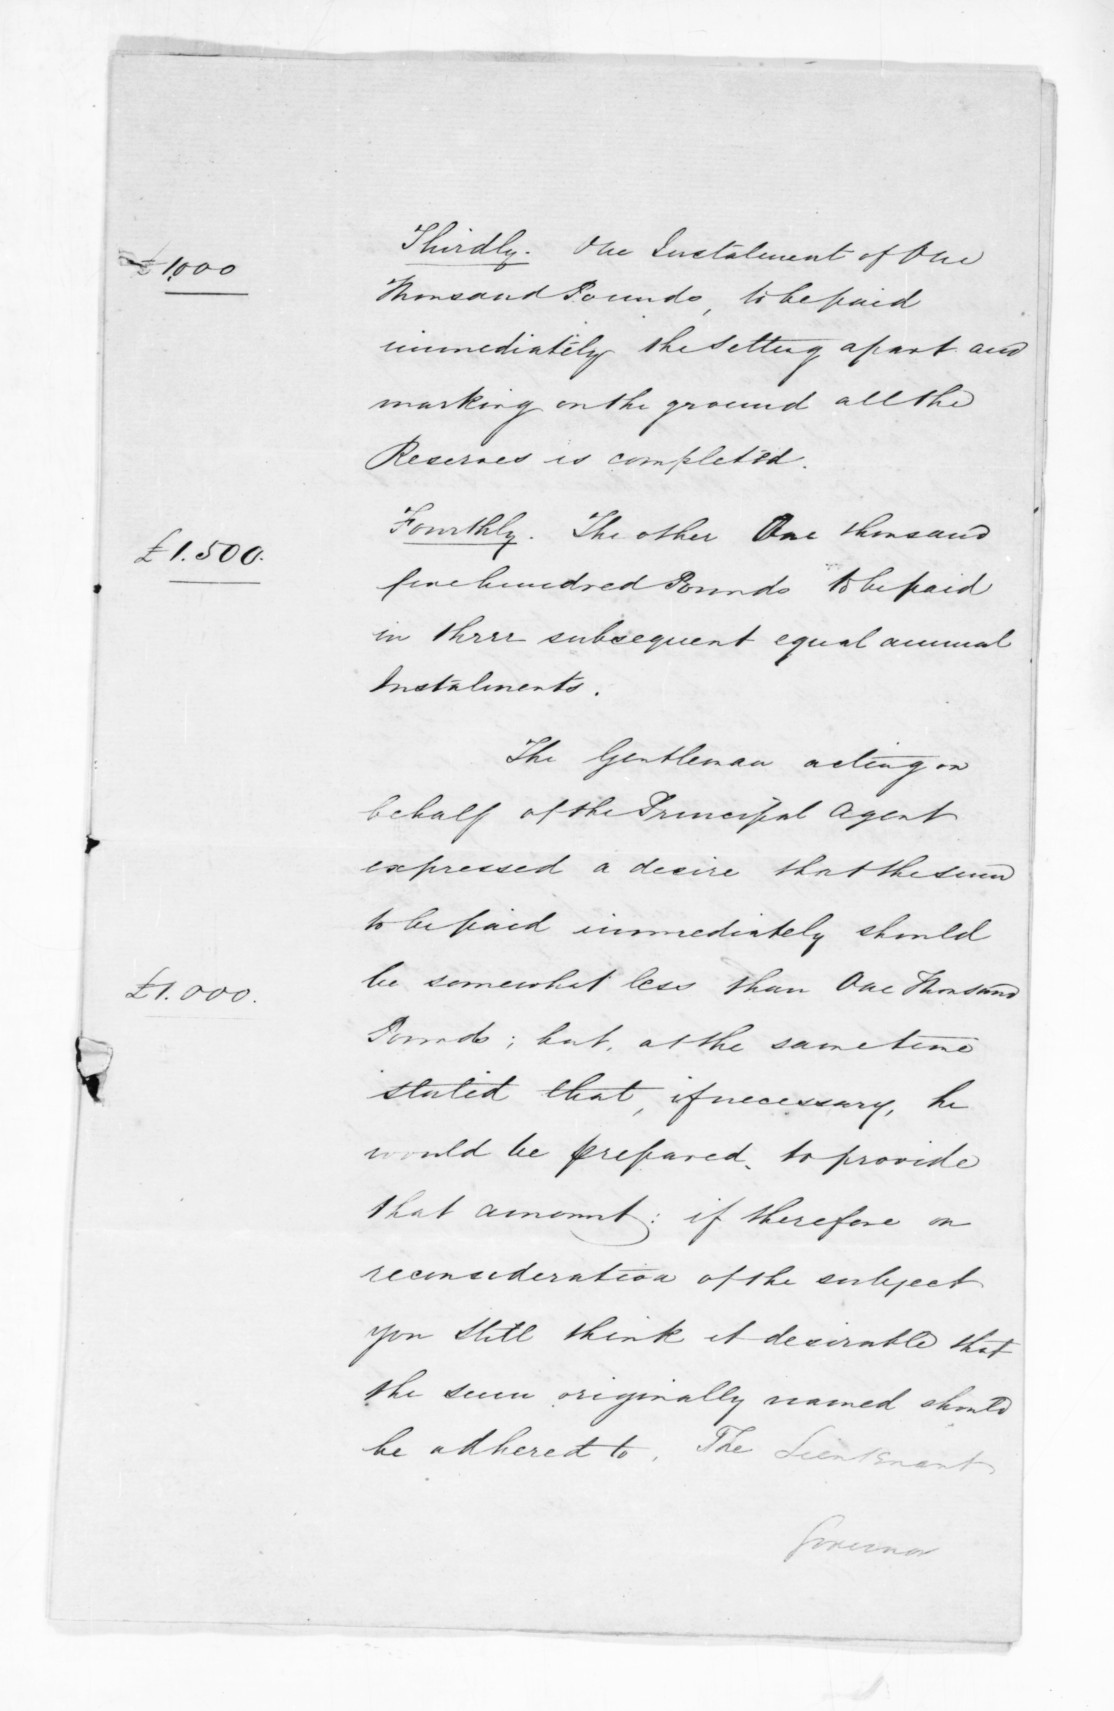 £1,000
Thirdly. One Instalment of One
Thousand Pounds, to be paid
immediately the setting apart and
marking on the ground all the
Reserves is completed.
£1.500.
Fourthly. The other One thousand
five hundred Pounds to be paid
in three subsequent equal annual
Instalments.
The Gentleman acting on
behalf of the Principal Agent
expressed a desire that the sum
to be paid immediately should
£1.000.
be somewhat less than One Thousand
Pounds; but, at the same time
stated that, if necessary, he
would be prepared, to provide
that amount: if therefore on
reconsideration of the subject
you still think it desirable that
the sum originally named should
be adhered to, The Lieutenant
Governor